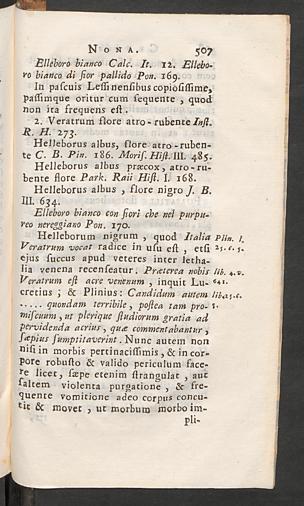 NONA. 507
Elleboro bianco Calc. It. 12. Ellebo-
ro bianco di fior pallido Pon. 169.
In pascuis Lessinensibus copiosissime,
passimque oritur cum sequente, quod
non ita frequens est.
2. Veratrum flore atro-rubente Inst.
R. H. 273.
Helleborus albus, flore atro-ruben-
te C. B. Pin. 186. Moris. Hist. III. 485.
Helleborus albus præcox, atro-ru-
bente flore Park. Raii Hist. I. 168.
Helleborus albus, flore nigro J. B.
III. 634.
Elleboro bianco con fiori che nel purpu-
reo nereggiano Pon. 170.
Helleborum nigrum, quod Italia Plin. l.
Veratrum vocat radice in usu est, etsi 25. c. 5.
ejus succus apud veteres inter letha-
lia venena recenseatur. Præterea nobis lib. 4. v.
Veratrum est acre venenum, inquit Lu- 641.
cretius; & Plinius: Candidum autem lib. 25. c.
..... quondam terribile, postea tam pro- 5.
miscuum, ut plerique studiorum gratia ad
pervidenda acrius, quæ commentabantur,
sæpius sumptitaverint. Nunc autem non
nisi in morbis pertinacissimis, & in cor-
pore robusto & valido periculum face-
re licet, sæpe etenim strangulat, aut
saltem violenta purgatione, & fre-
quente vomitione adeo corpus concu-
tit & movet, ut morbum morbo im-
pli-